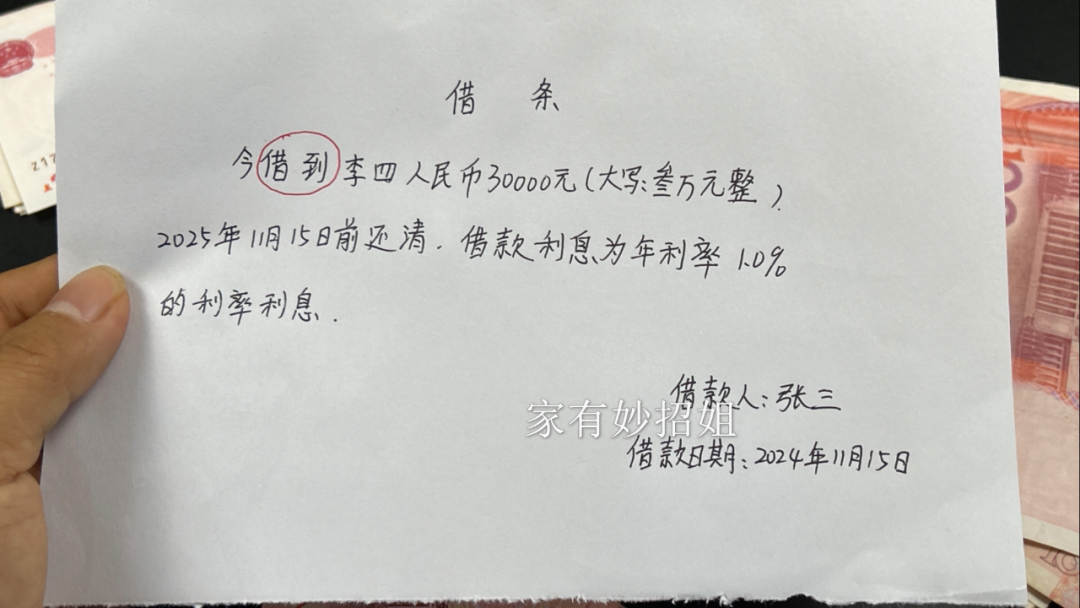 借 条
今借到李四人民币30000元(大写:叁万元整).
2025年11月15日前还清.借款利息为年利率1.0%
的利率利息.
借款人:张三
家有妙招姐
借款日期:2024年11月15日